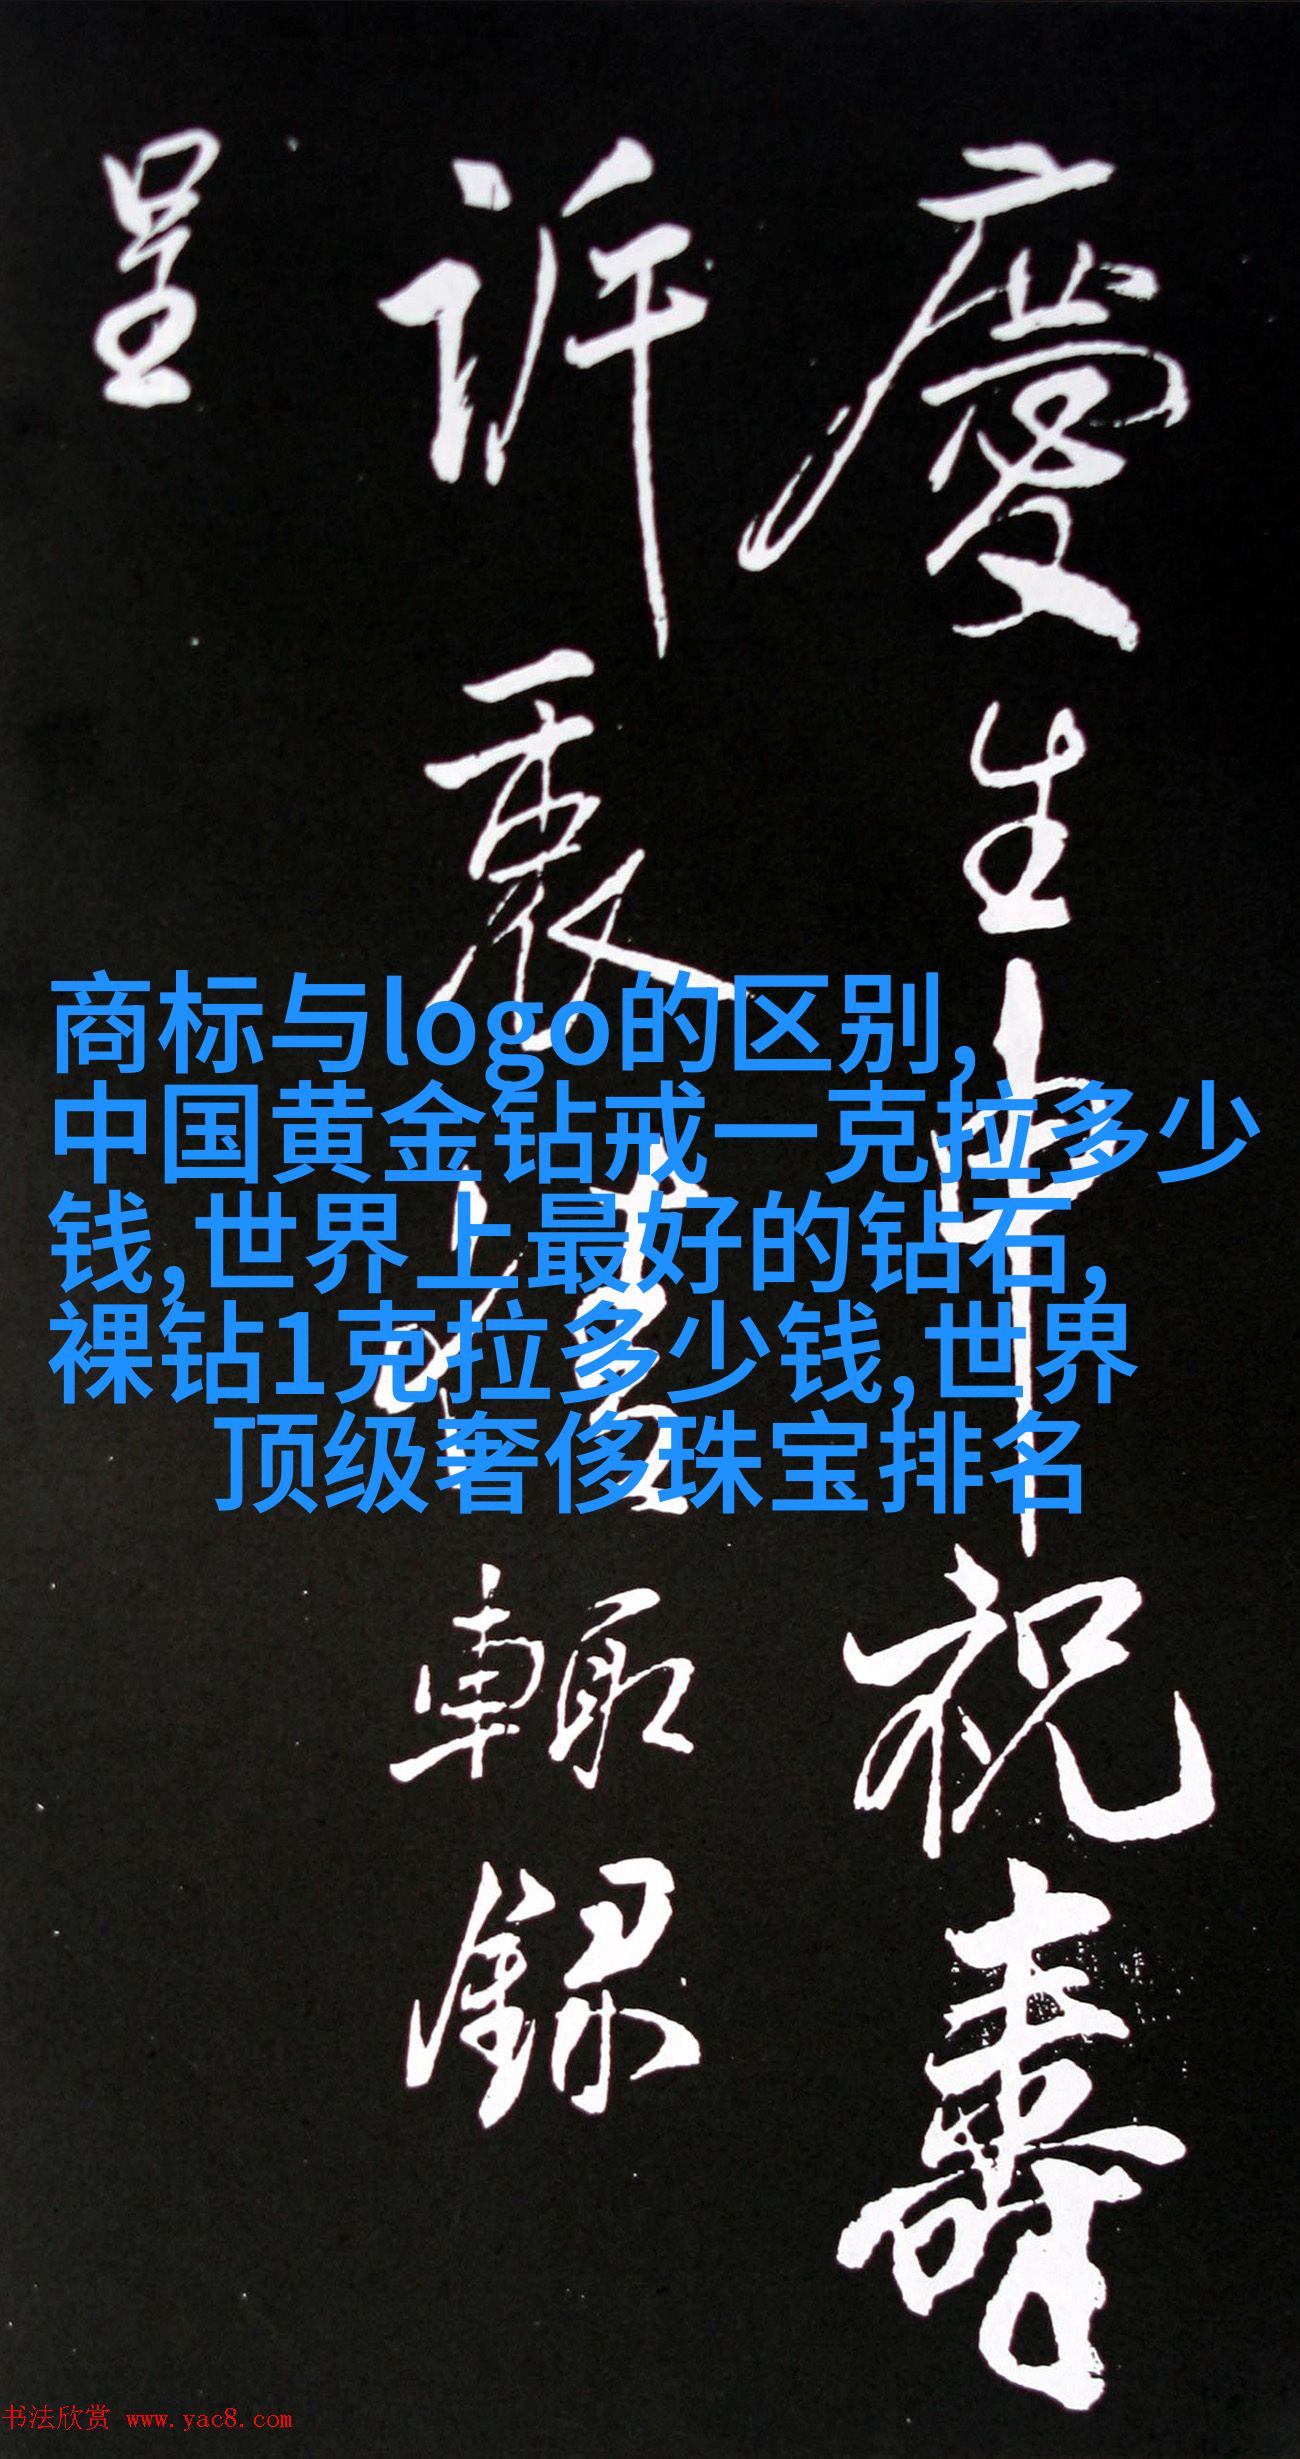 慶生申祝壽
訴衷情輒錄
呈
商标与logo的区别,
中国黄金钻戒一克拉多少
钱,世界上最好的钻石,
裸钻1克拉多少钱,世界
顶级奢侈珠宝排名
书法欣赏 www.yac8.com